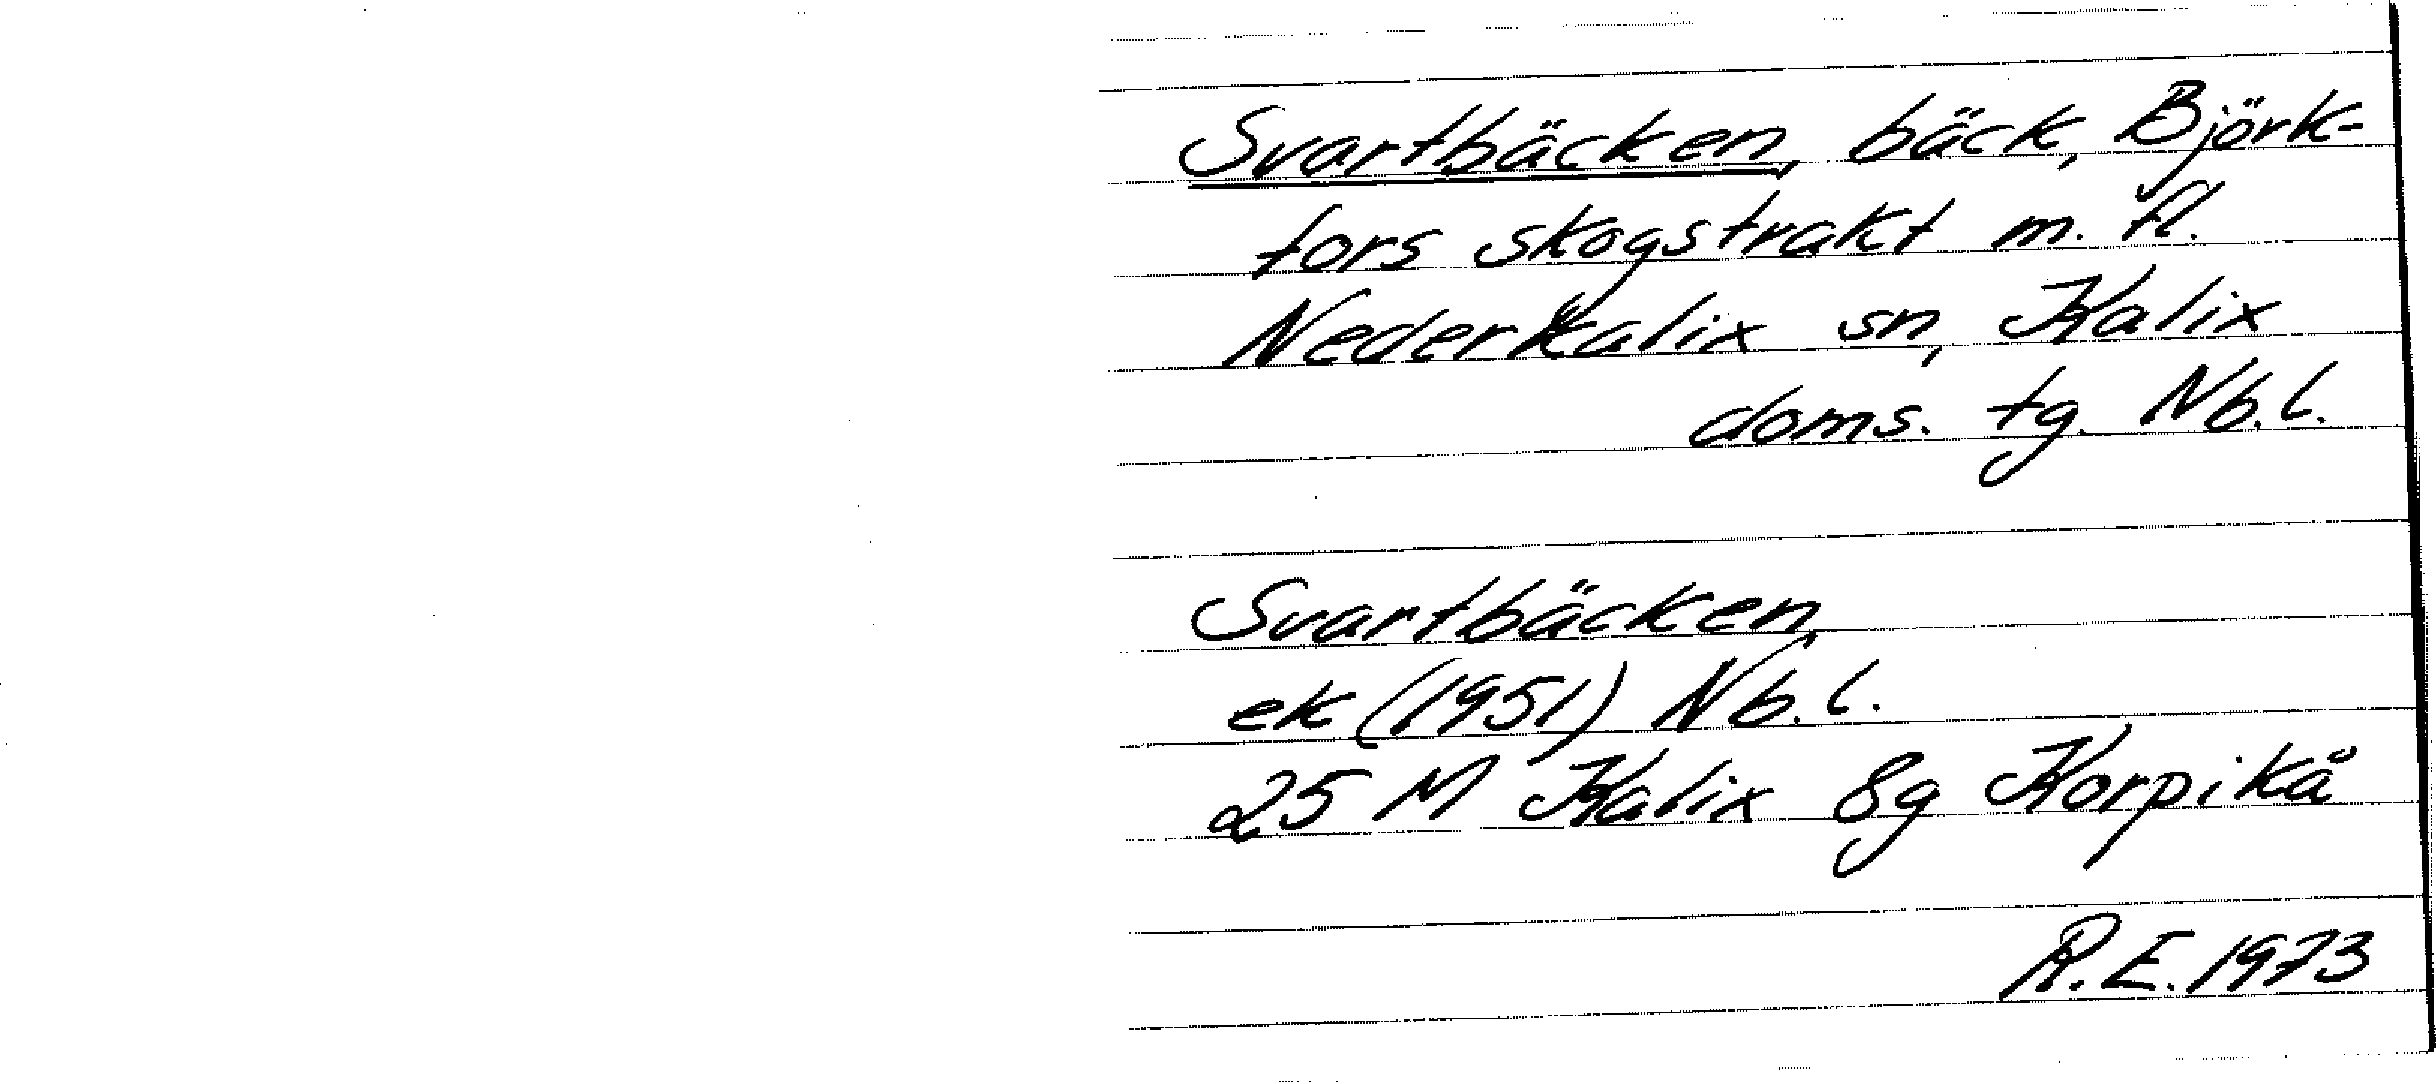 Svartbäcken, bäck, Björk-
fors skogstrakt m. fl.
Nederkalix sn, Kalix
doms. tg. Nb.l.
Svartbäcken,
ek (1951) Nb.l.
25 M Kalix 8g Korpikå
R.E. 1973